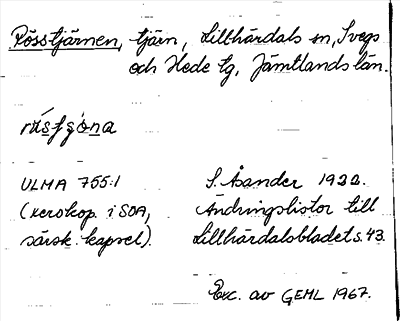 Rösstjärnen, tjärn, Lillhärdals sn, Svegs
och Hede tg, Jämtlands län.
ULMA 755:1 S. Åsander 1922.
(xerokop. i SOA, Ändringslistor till
särsk. kapsel). Lillhärdalsbladet s. 43.
Exc. av GEHL 1967.